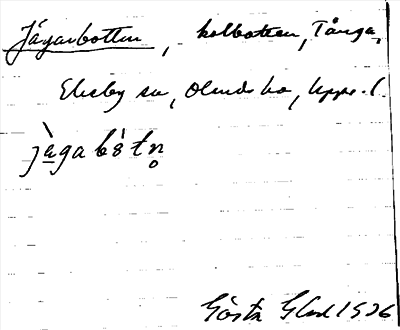 Jägarbotten, kolbotten, Tånga,
Ekeby sn, Olands hd, Uppl.
jägabòtn̥
Gösta Glad 1926